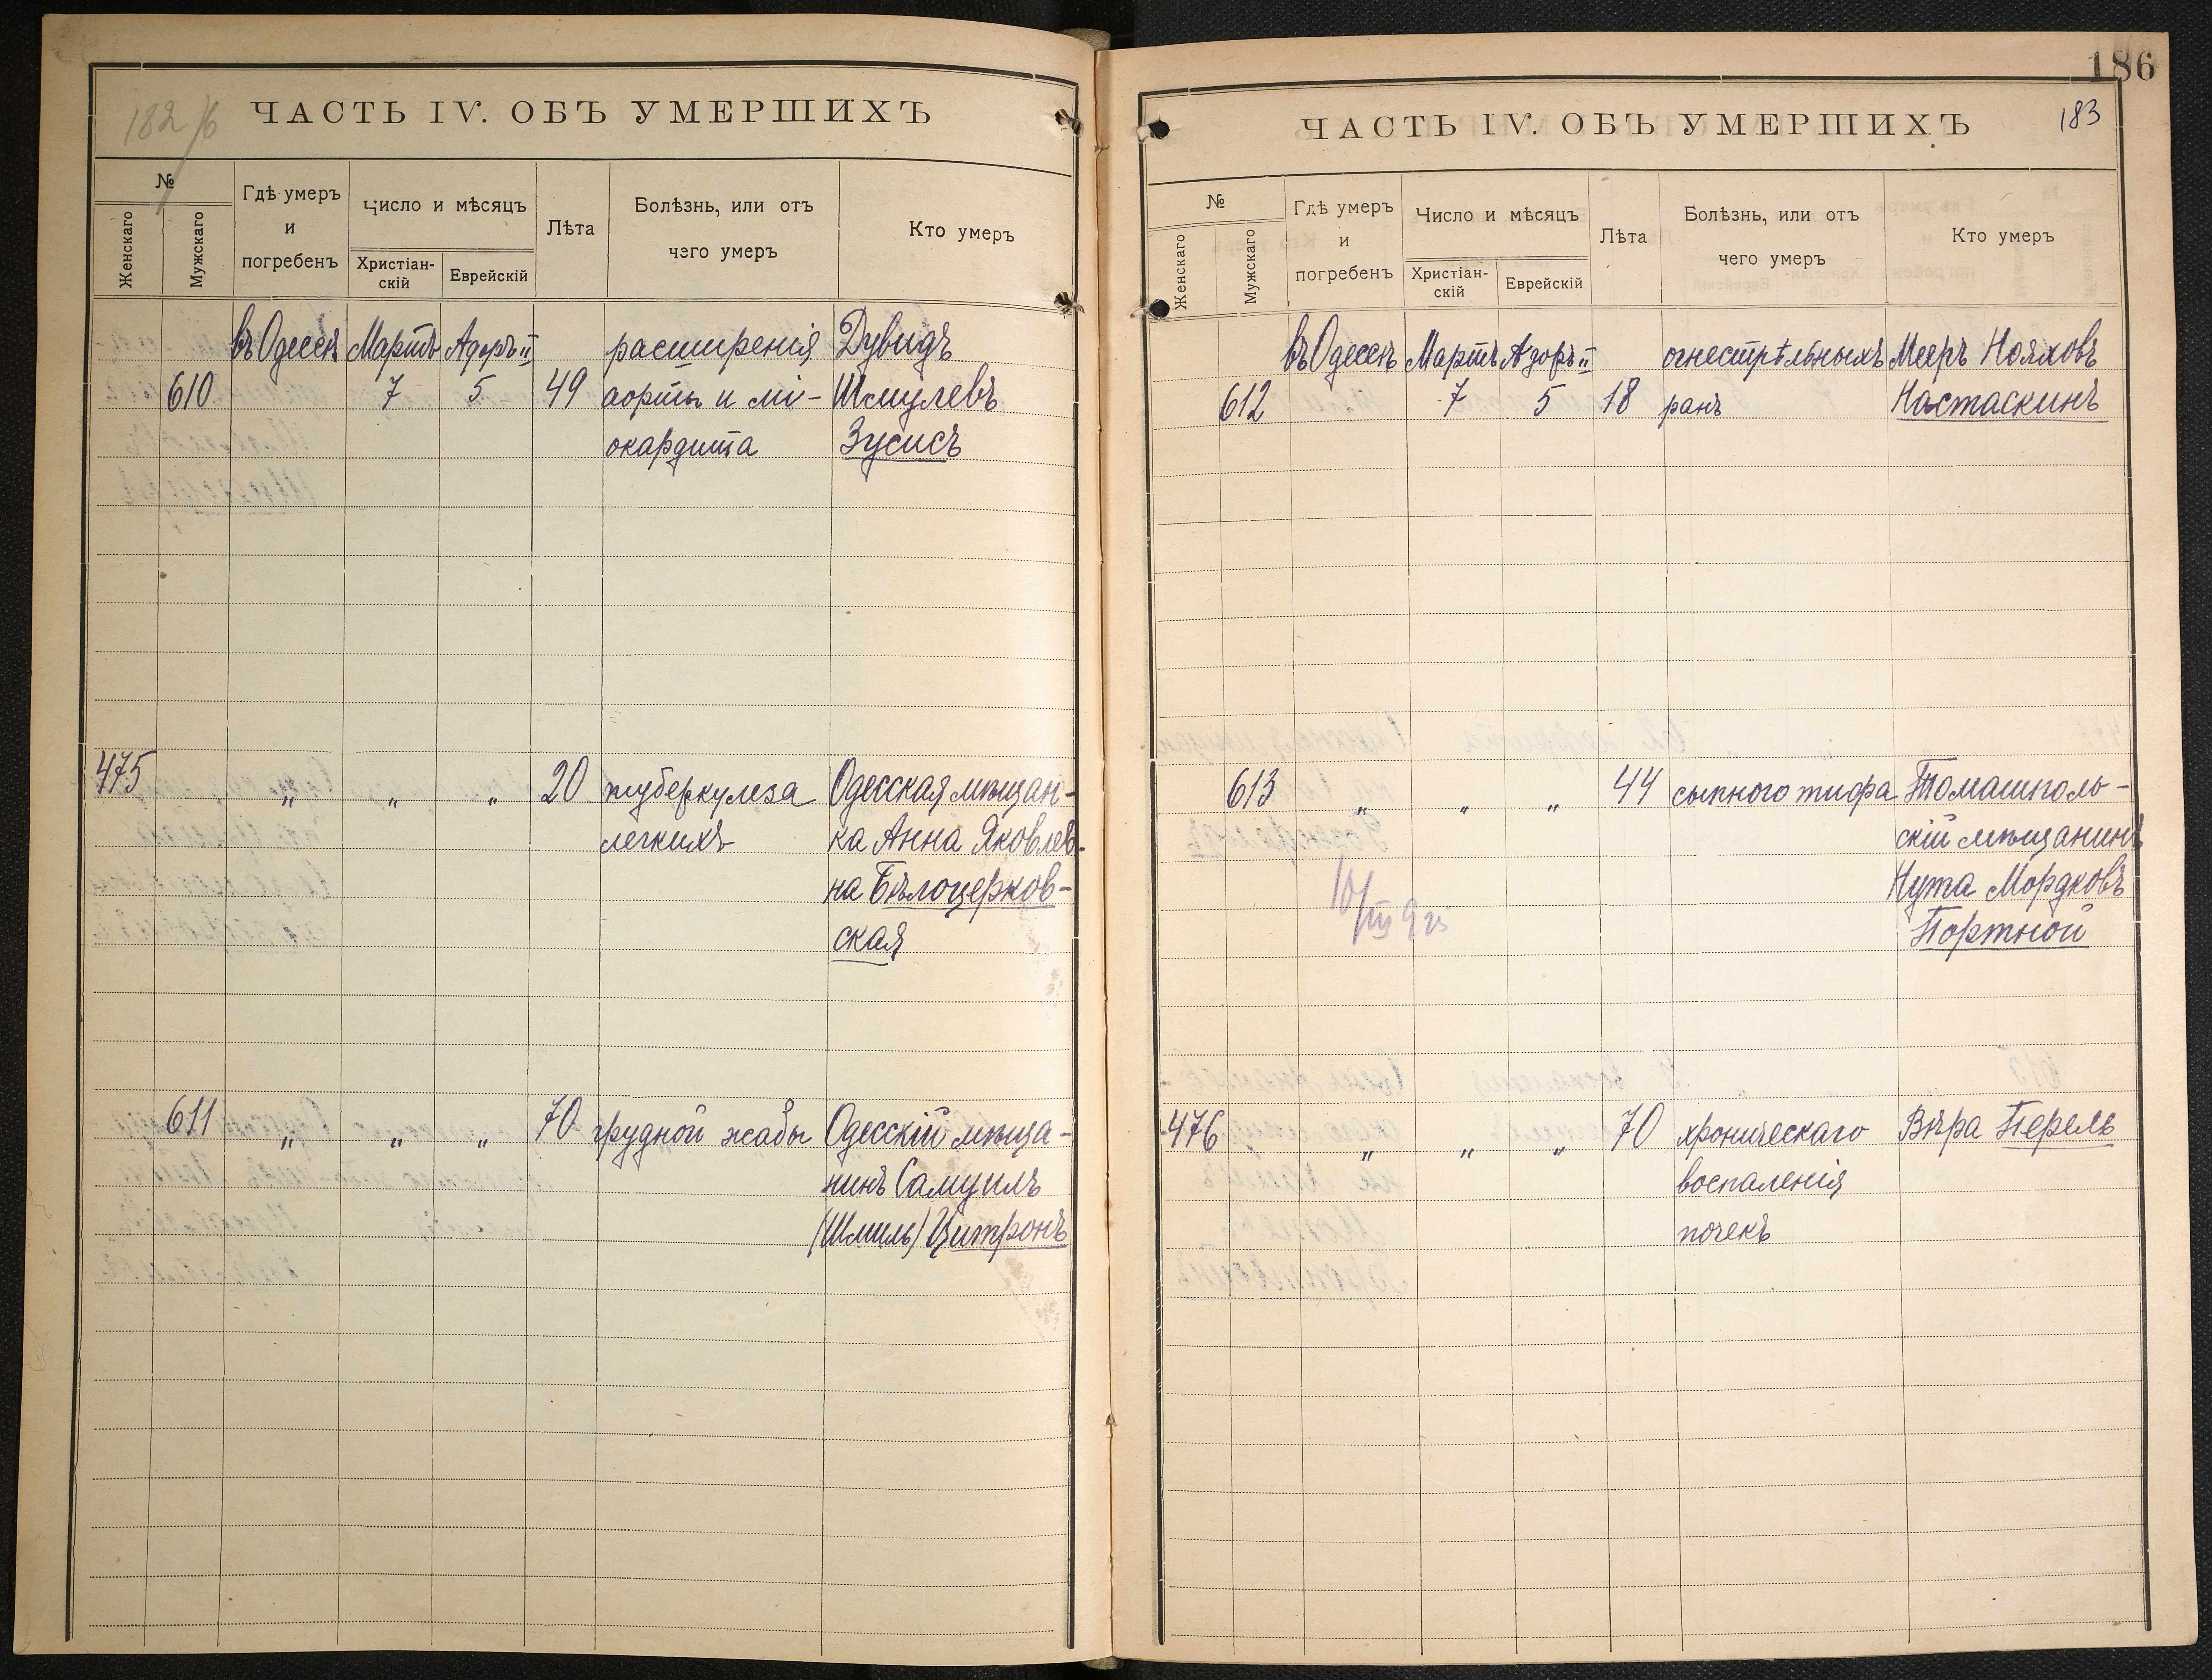 182/б
ЧАСТЬ IV. ОБЪ УМЕРШИХЪ
№
Женскаго
Мужскаго
Гдѣ умеръ
и
погребенъ
Число и мѣсяцъ
Христіан-
скій
Еврейскій
Лѣта
Болѣзнь, или отъ
чего умеръ
Кто умеръ
въ Одессѣ Мартъ Адоръ II расширенія Дувидъ
610 7 5 49 аорты и мі- Шмулевъ
окардита Зусисъ
475 " " " 20 туберкулеза Одесская мѣщан-
легкихъ ка Анна Яковлев-
на Бѣлоцерков-
ская
611 " " " 70 грудной жабы Одесскій мѣща-
нинъ Самуилъ
(Шмиль) Цитронъ
186
183
ЧАСТЬ IV. ОБЪ УМЕРШИХЪ
№
Женскаго
Мужскаго
Гдѣ умеръ
и
погребенъ
Число и мѣсяцъ
Христіан-
скій
Еврейскій
Лѣта
Болѣзнь, или отъ
чего умеръ
Кто умеръ
въ Одессѣ Мартъ Адоръ II огнестрѣльныхъ Мееръ Нояховъ
612 7 5 18 ранъ Настаскинъ
613 " " " 44 сыпного тифа Томашполь-
скій мѣщанинъ
Нута Мордковъ
Портной
10/III
476 " " " 70 хроническаго Вѣра Перель
воспаленія
почекъ